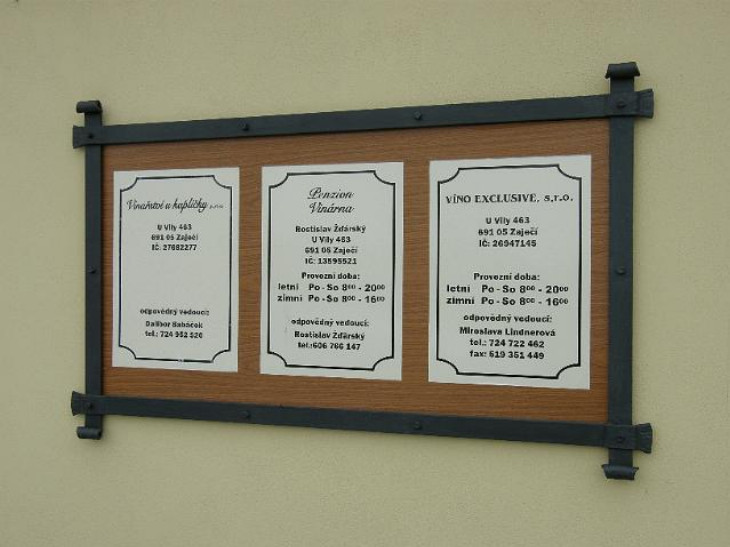 Vinařství u kapličky s.r.o.
U Vily 463
691 05 Zaječí
IČ: 27682277
odpovědný vedoucí:
Dalibor Babáček
tel.: 724 952 520
Penzion
Vinárna
Rostislav Žďárský
U Vily 463
691 05 Zaječí
IČ: 13595521
Provozní doba:
letní Po - So 8⁰⁰ - 20⁰⁰
zimní Po - So 8⁰⁰ - 16⁰⁰
odpovědný vedoucí:
Rostislav Žďárský
tel.:606 766 147
VÍNO EXCLUSIVE, s.r.o.
U Vily 463
691 05 Zaječí
IČ: 26947145
Provozní doba:
letní Po - So 8⁰⁰ - 20⁰⁰
zimní Po - So 8⁰⁰ - 16⁰⁰
odpovědný vedoucí:
Miroslava Lindnerová
tel.: 724 722 462
fax: 519 351 449